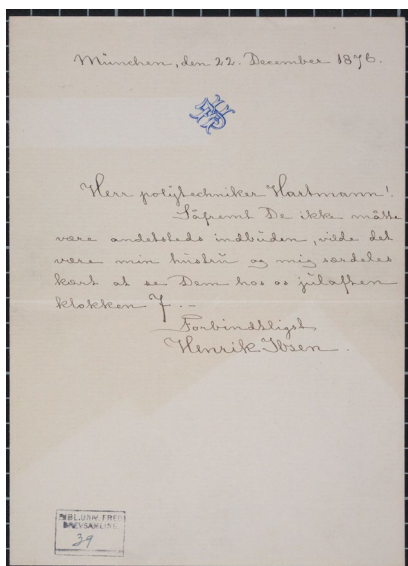 München, den 22. December 1876.
Herr polytechniker Hartmann!
Såfremt De ikke måtte
være andetsteds indbuden, vilde det
være min hustru og mig særdeles
kært at se Dem hos os julaften
klokken 7.-
Forbindtligst
Henrik Ibsen.
BREVSAMLING
39